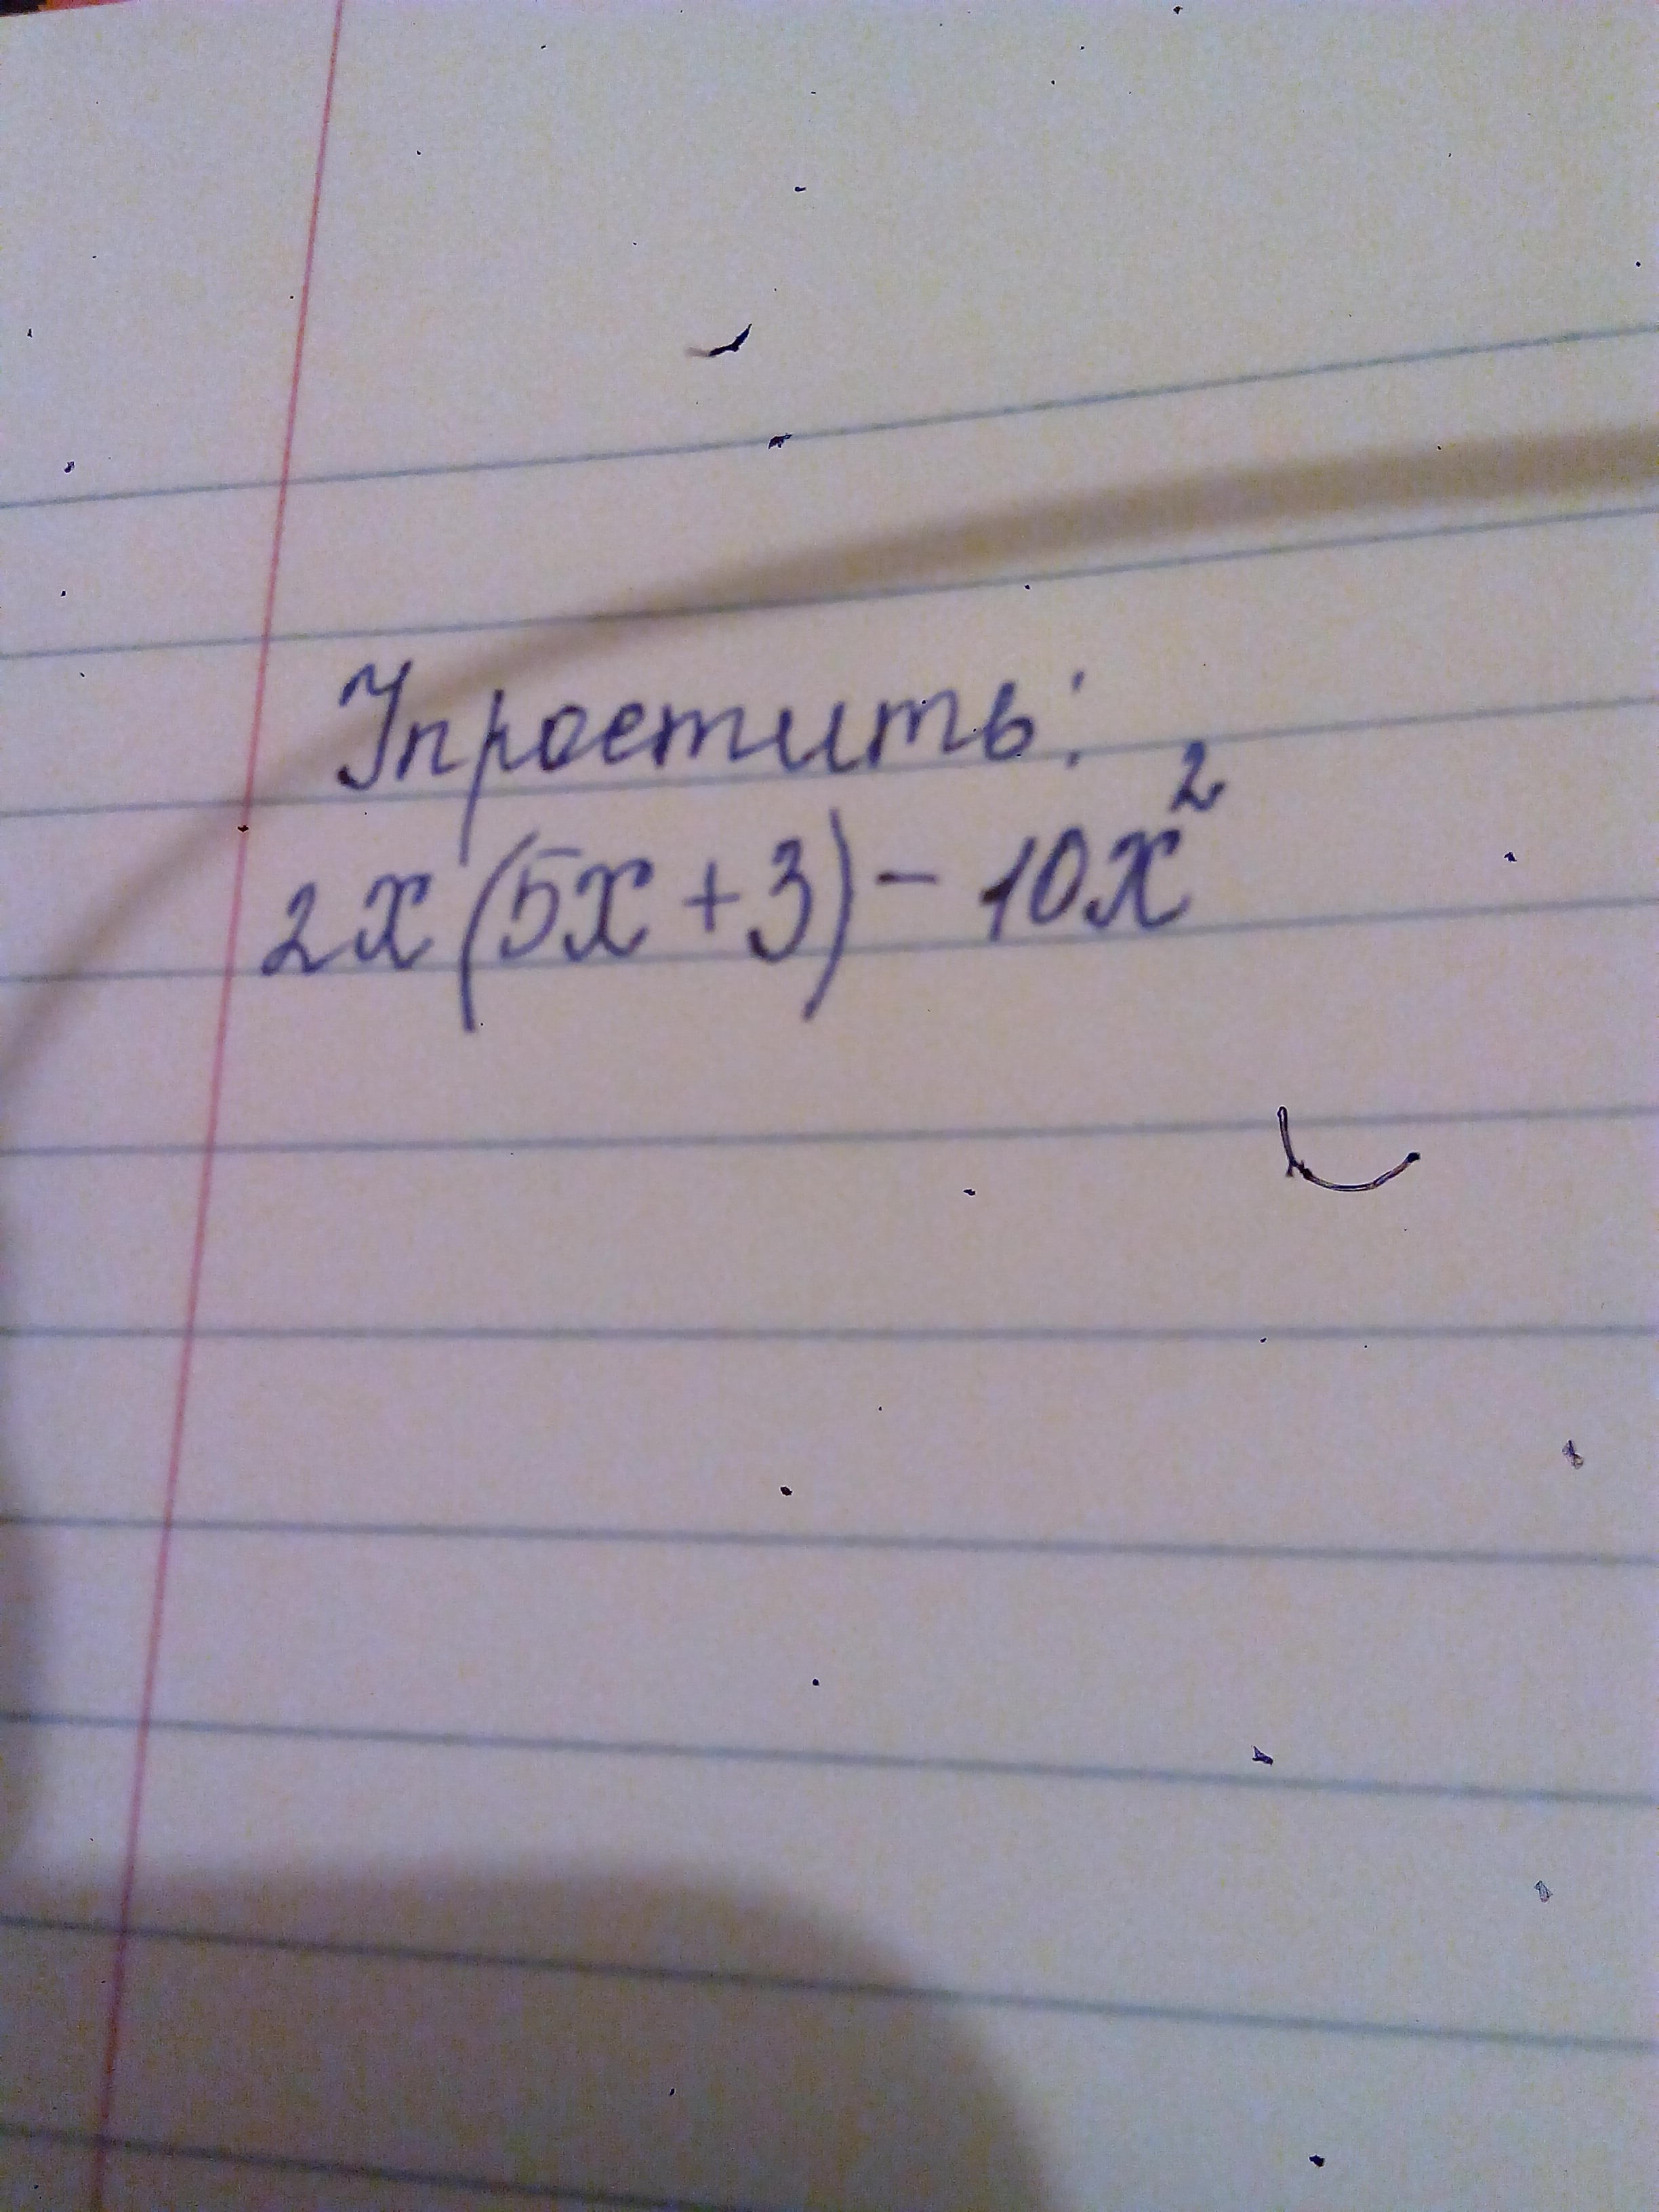 Упростить:
2x(5x+3)-10x²